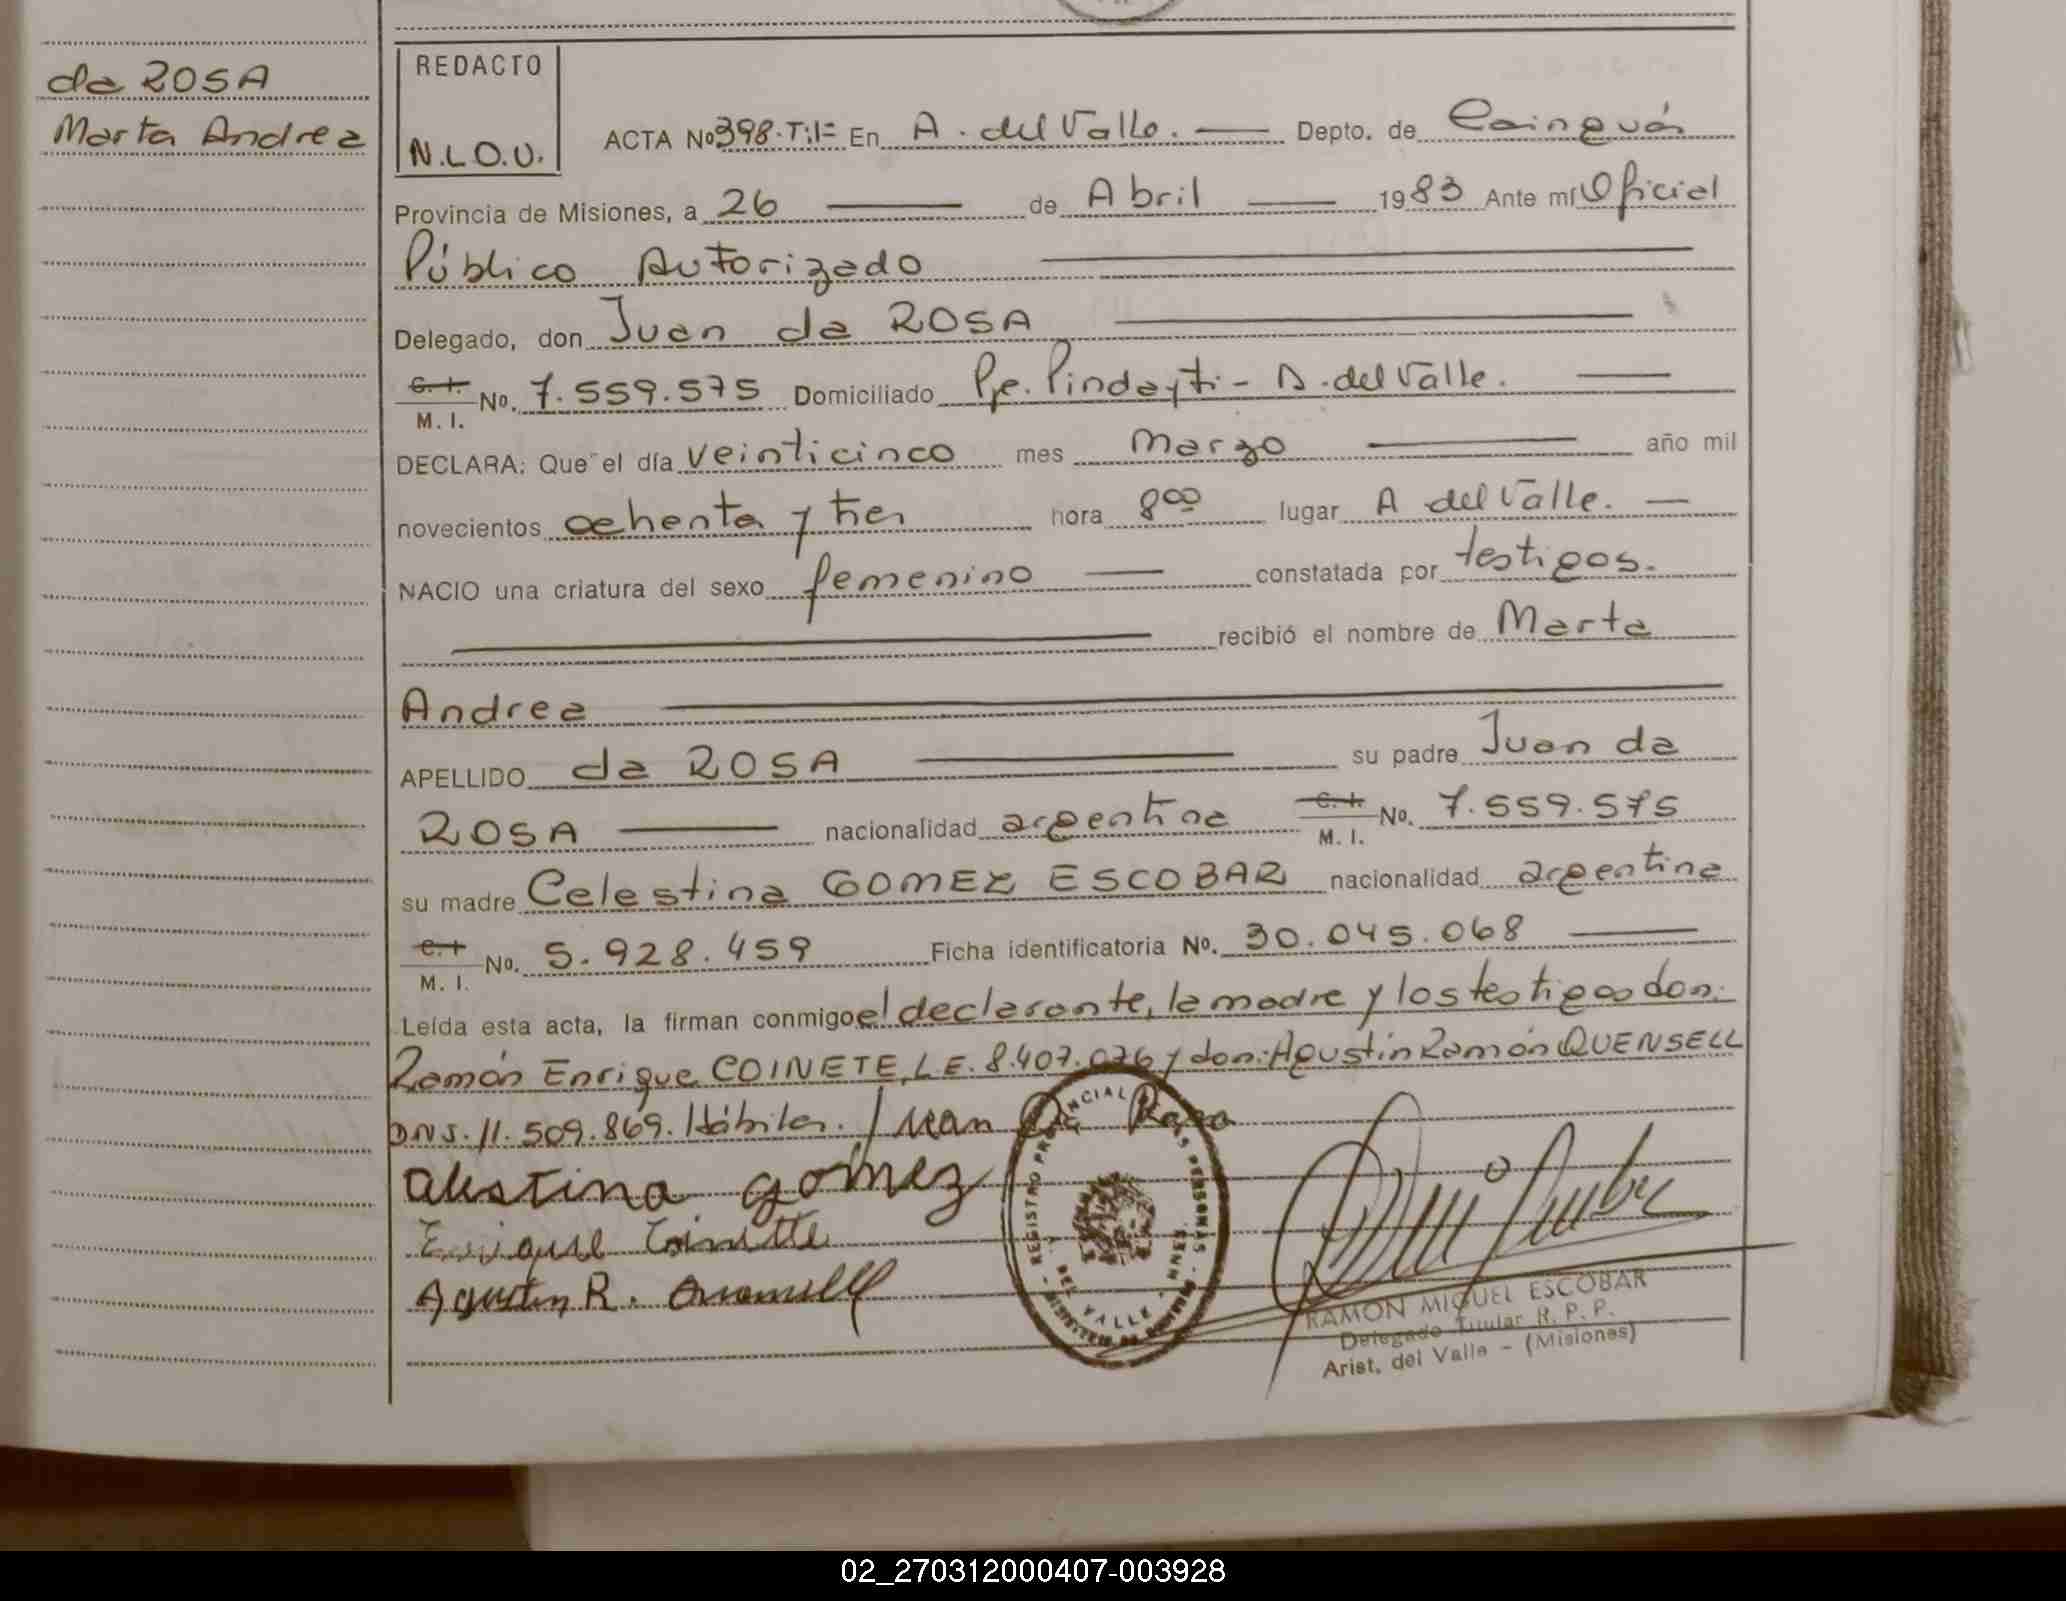 da ROSA
Marta Andrea
REDACTO
N.L.O.U.
ACTA Nº 398.T:I= En A. del Valle. Depto. de Cainguás
Provincia de Misiones, a 26 de Abril 1983 Ante mí Oficial
Público Autorizado
Delegado, don Juan da ROSA
C. I. No. 7.559.575 Domiciliado Pje. Pindayti - A. del Valle.
M. I.
DECLARA: Que el día veinticinco mes marzo año mil
novecientos ochenta y tres hora 8 00 lugar A del Valle.
NACIO una criatura del sexo femenino constatada por testigos.
recibió el nombre de Marta
Andrea
APELLIDO da ROSA su padre Juan da
ROSA nacionalidad argentina C. I. No. 7.559.575
M. I.
su madre Celestina GOMEZ ESCOBAR nacionalidad argentina
C. I No. 5.928.459 Ficha identificatoria Nº. 30.045.068
M. I.
Leída esta acta, la firman conmigo el declarante, la madre y los testigos don:
Ramón Enrique COINETE, L.E. 8.407.076 y don: Agustín Ramón QUENSELL
DNJ. 11.509.869. Hábiles. Juan Da Rosa
Celestina gomez
Enrique Coinette
Agustin R.
REGISTRO PROVINCIAL DE LAS PERSONAS
DEL VALLE
RAMON MIGUEL ESCOBAR
Delegado Titular R. P. P.
Arist. del Valle - (Misiones)
02_270312000407-003928